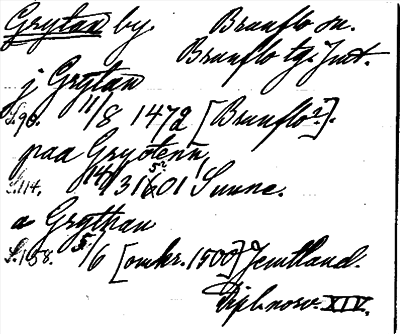 Grytan by Brunflo sn.
Brunflo tg. Jmt.
j Grytan
S. 90. 11/8 1472 [Brunflo?].
paa Gryotenn
S. 114. 14/3 1601 Sunne.
a Grythan
S. 158. 5/6 [omkr. 1500] Jemtland.
Dipl. norv. XIV.